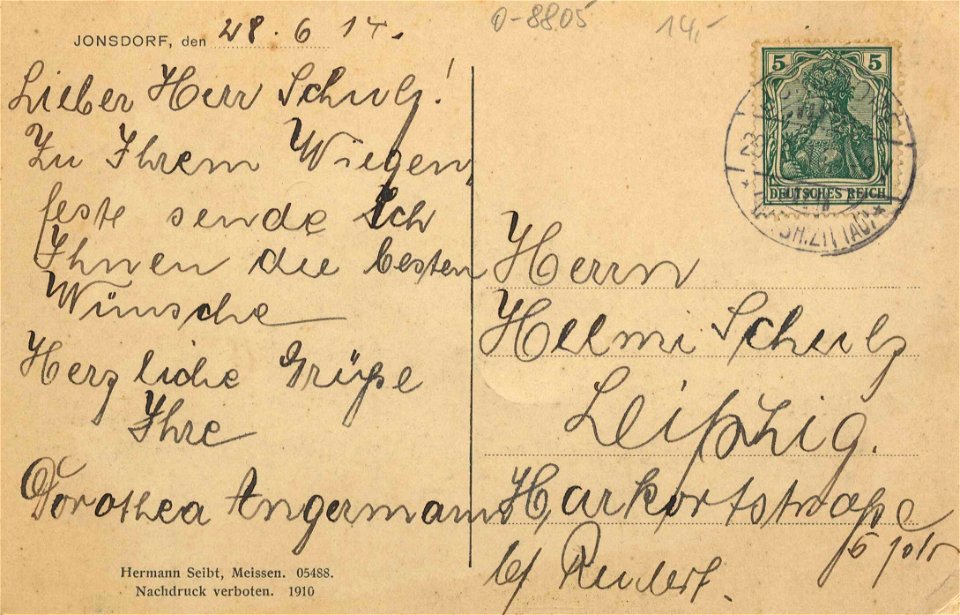 JONSDORF, den 28. 6 14.
0-8805 14,-
Lieber Herr Schulz!
Zu Ihrem Wiegen,
feste sende Ich
Ihnen die besten
Wünsche
Herzliche Grüße
Ihre
Dorothea Angermann
Hermann Seibt, Meissen. 05488.
Nachdruck verboten. 1910
5 5
DEUTSCHES REICH
Herrn
Helmi Schulz
Leipzig.
Harkortstraße
b/